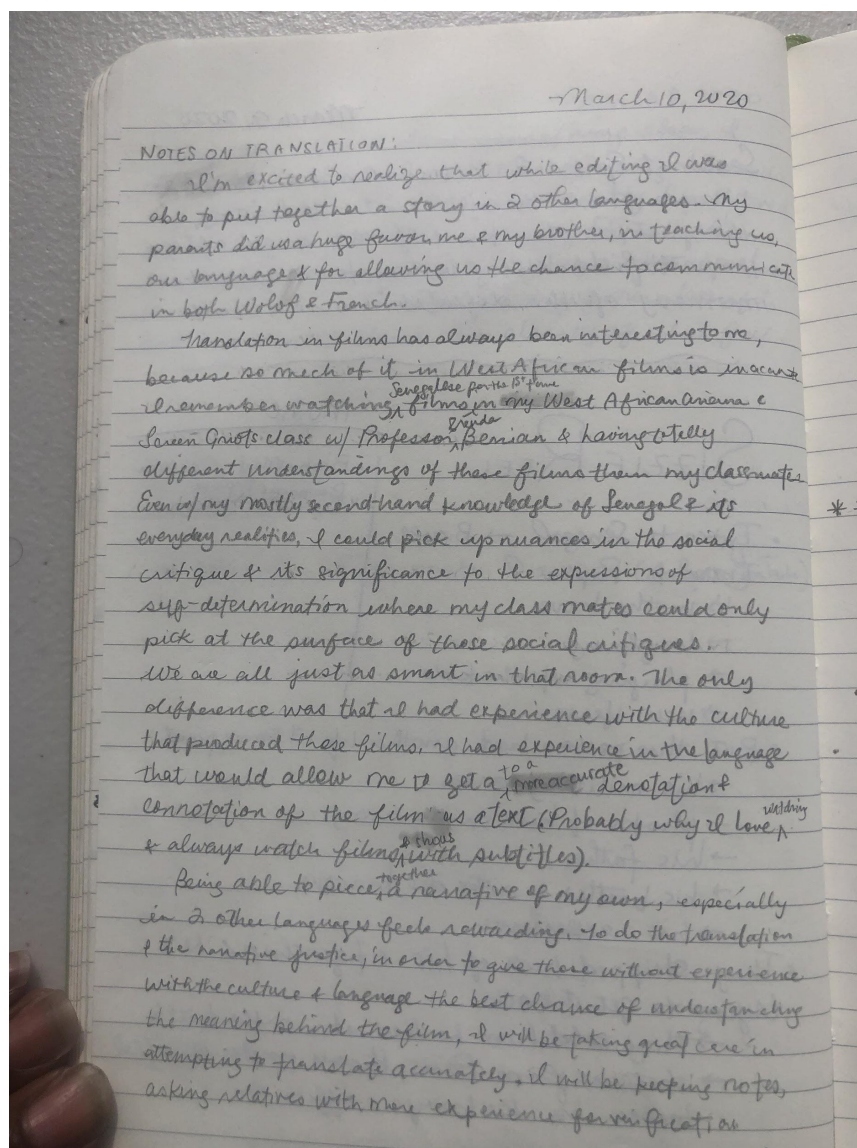 March 10, 2020
NOTES ON TRANSLATION:
I'm excited to realize that while editing I was
able to put together a story in 2 other languages. My
parents did us a huge favor, me & my brother, in teaching us,
our language & for allowing us the chance to communicate
in both Wolof & French.
Translation in films has always been interesting to me,
because so much of it in West African films is inaccurate
Senegalese for the 1st time
I remember watching films in my West African Cinema &
Brenda
Screen Griots class w/ Professor Berrian & having totally
different understandings of these films than my classmates
Even w/ my mostly second-hand knowledge of Senegal & its
everyday realities, I could pick up nuances in the social
critique & its significance to the expressions of
self-determination where my class mates could only
pick at the surface of those social critiques.
We are all just as smart in that room. The only
difference was that I had experience with the culture
that produced these films, I had experience in the language
to a
that would allow me to get a more accurate denotation &
connotation of the film as a text (Probably why I love watching
& shows
& always watch films with subtitles).
together
Being able to piece a narrative of my own, especially
in 2 other languages feels rewarding. To do the translation
& the narrative justice, in order to give those without experience
with the culture & language the best chance of understanding
the meaning behind the film, I will be taking great care in
attempting to translate accurately. I will be keeping notes,
asking relatives with more experience for verification